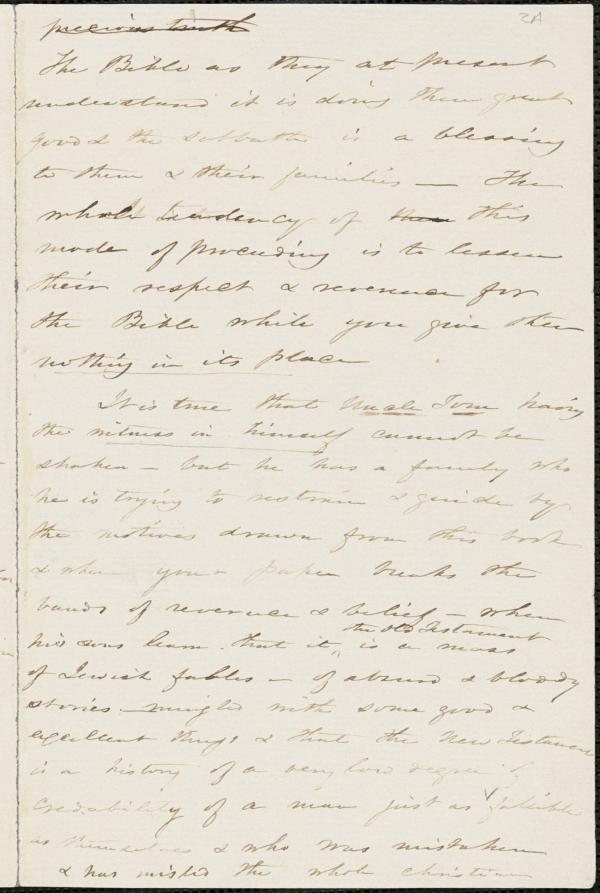 2A
precious truth
The Bible as they at present
understand it is doing them great
good & the sabbath is a blessing
to them & their families — The
whole tendency of them this
mode of proceeding is to lessen
their respect & reverence for
the Bible while you give them
nothing in its place
It is true that Uncle Tom having
the witness in himself cannot be
shaken — but he has a family who
he is trying to restrain & guide by
the motives drawn from this book
& when your paper breaks the
bands of reverence & belief — when
his sons learn that it, the Old Testament is a mass
of Jewish fables — of absurd & bloody
stories mingled with some good &
excellent things & that the New Testament
is a history of a very low degree of
credibility of a man just as fallible
as themselves & who was mistaken
& has misled the whole christian